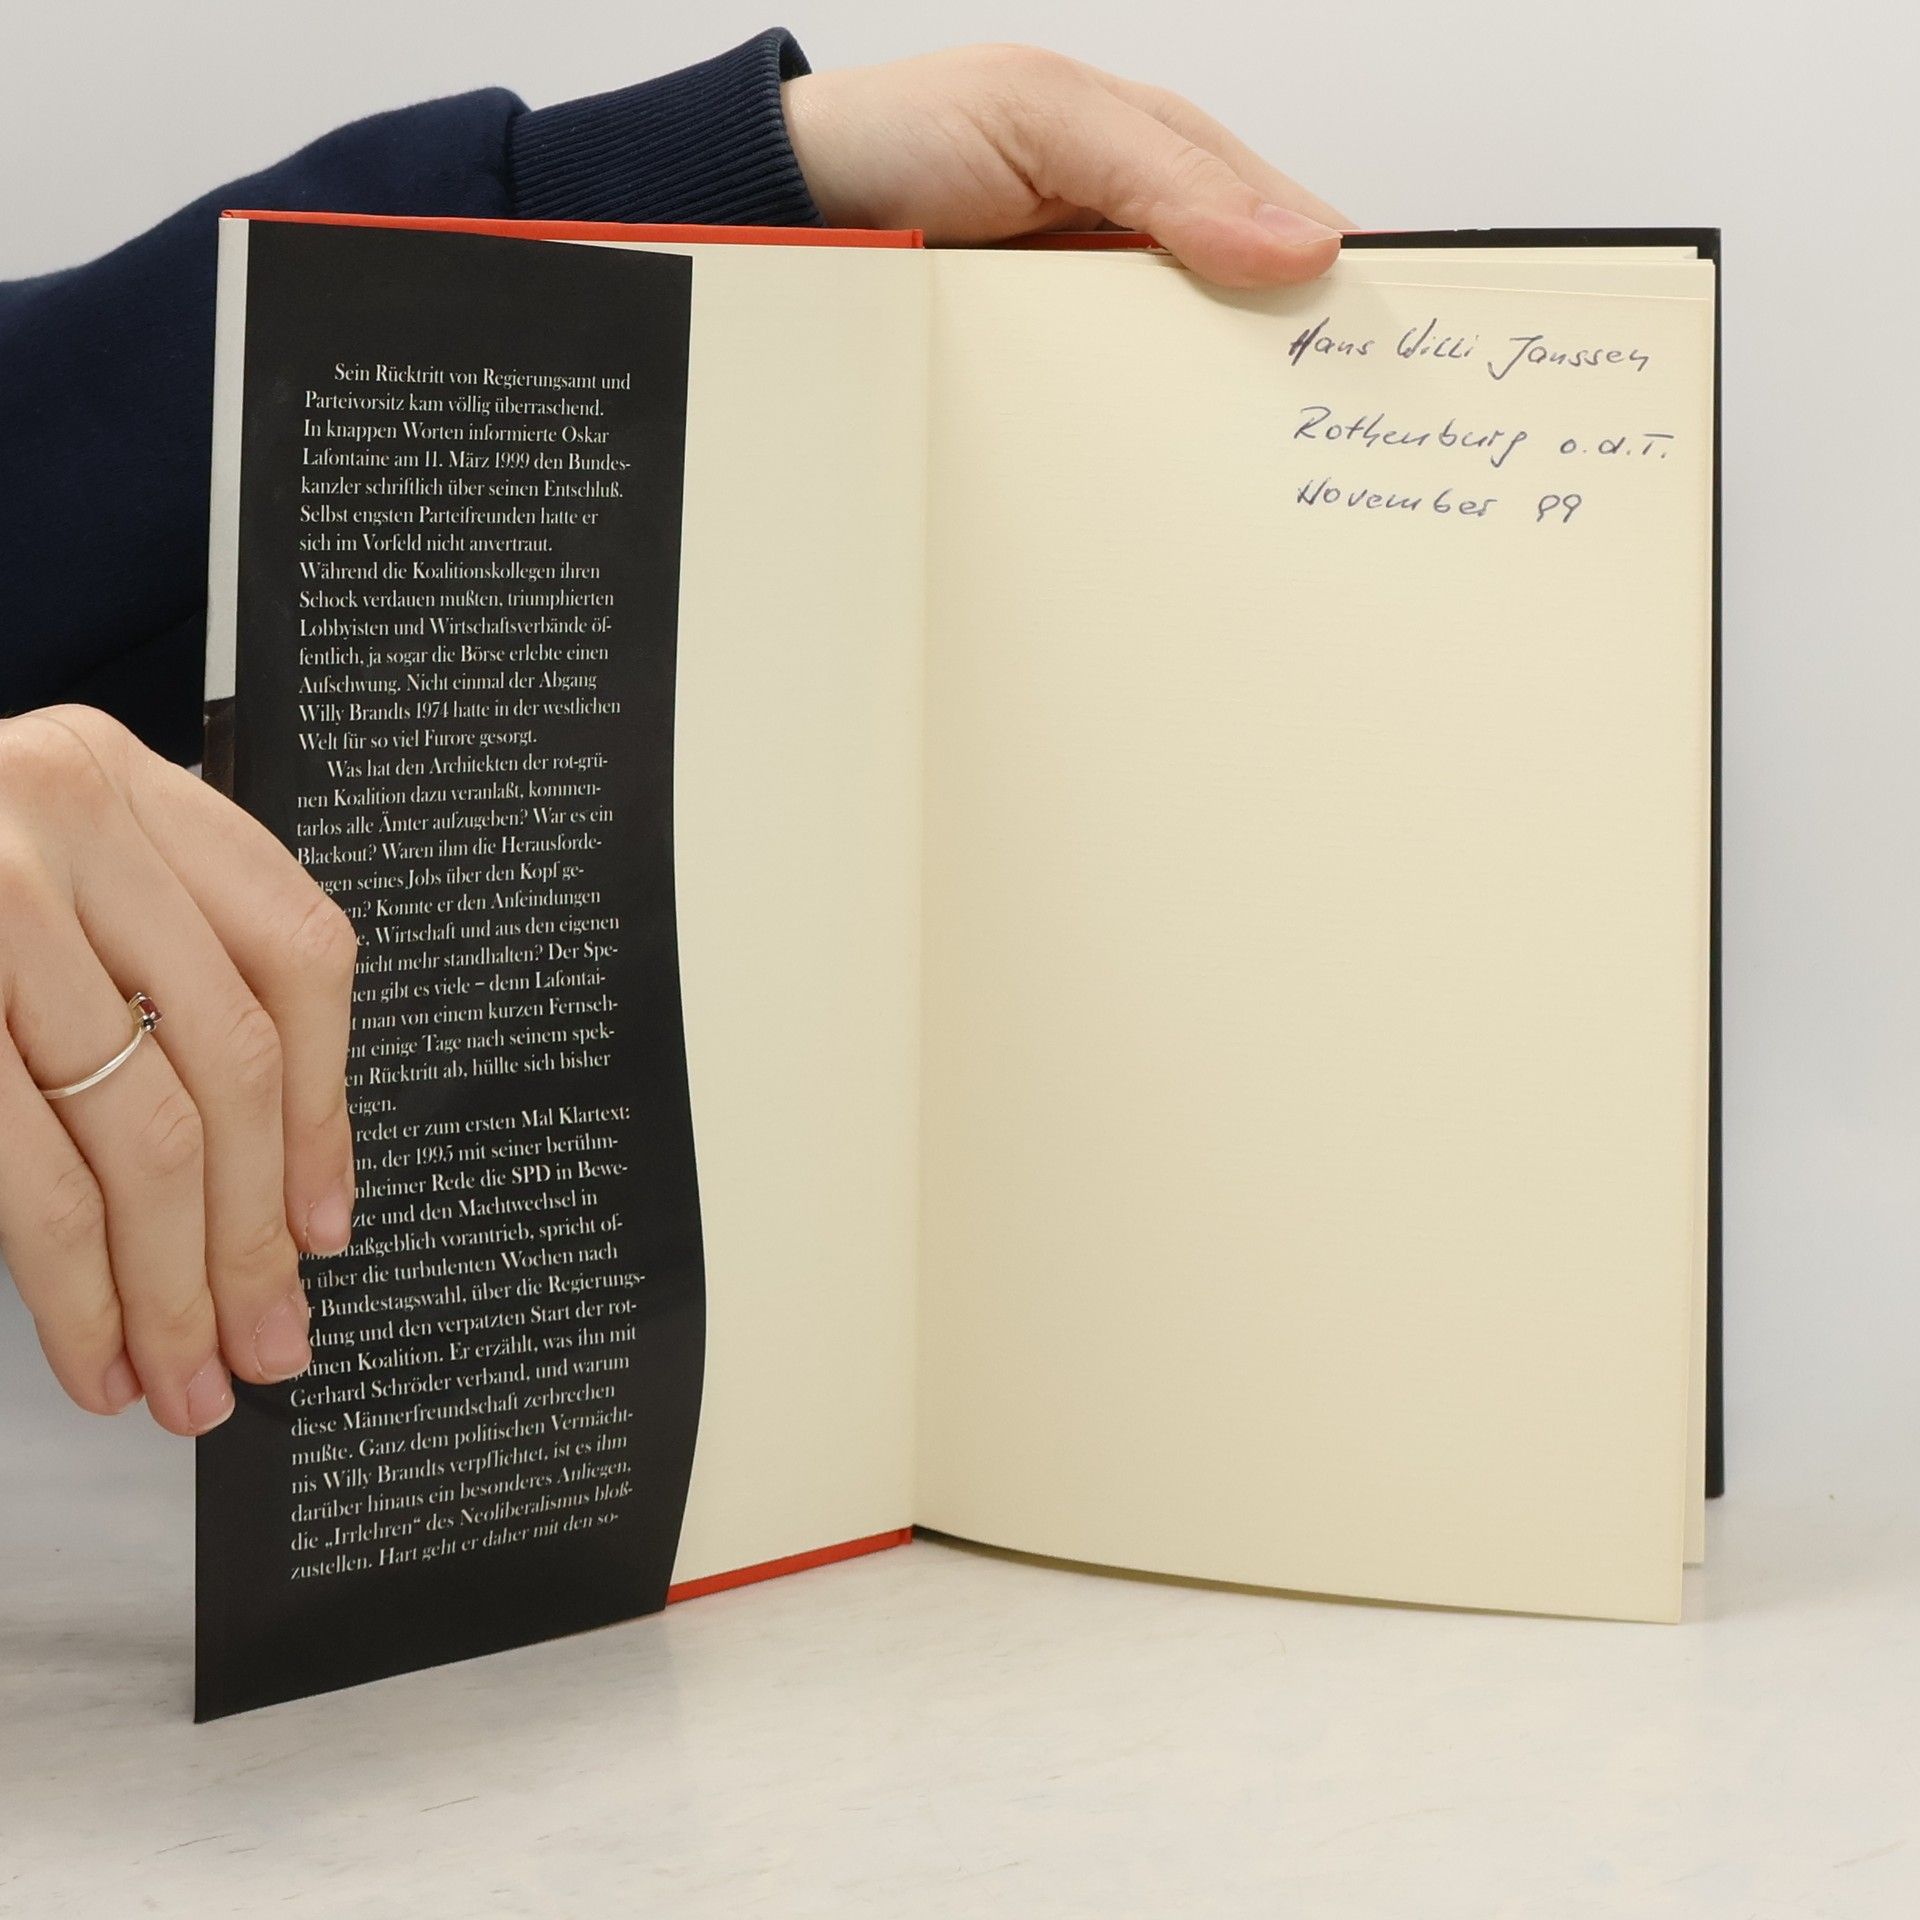 Sein Rücktritt von Regierungsamt und
Parteivorsitz kam völlig überraschend.
In knappen Worten informierte Oskar
Lafontaine am 11. März 1999 den Bundes-
kanzler schriftlich über seinen Entschluß.
Selbst engsten Parteifreunden hatte er
sich im Vorfeld nicht anvertraut.
Während die Koalitionskollegen ihren
Schock verdauen mußten, triumphierten
Lobbyisten und Wirtschaftsverbände öf-
fentlich, ja sogar die Börse erlebte einen
Aufschwung. Nicht einmal der Abgang
Willy Brandts 1974 hatte in der westlichen
Welt für so viel Furore gesorgt.
Was hat den Architekten der rot-grü-
nen Koalition dazu veranlaßt, kommen-
tarlos alle Ämter aufzugeben? War es ein
Blackout? Waren ihm die Herausforde-
seines Jobs über den Kopf ge-
Konnte er den Anfeindungen
Wirtschaft und aus den eigenen
nicht mehr standhalten? Der Spe-
gibt es viele – denn Lafontai-
man von einem kurzen Fernseh-
einige Tage nach seinem spek-
Rücktritt ab, hüllte sich bisher
redet er zum ersten Mal Klartext:
der 1995 mit seiner berühm-
Rede die SPD in Bewe-
und den Machtwechsel in
maßgeblich vorantrieb, spricht of-
über die turbulenten Wochen nach
Bundestagswahl, über die Regierungs-
und den verpatzten Start der rot-
Koalition. Er erzählt, was ihn mit
Gerhard Schröder verband, und warum
diese Männerfreundschaft zerbrechen
mußte. Ganz dem politischen Vermächt-
nis Willy Brandts verpflichtet, ist es ihm
darüber hinaus ein besonderes Anliegen,
die „Irrlehren“ des Neoliberalismus bloß-
zustellen. Hart geht er daher mit den so-
Hans Willi Janssen
Rothenburg o.d.T.
November 99